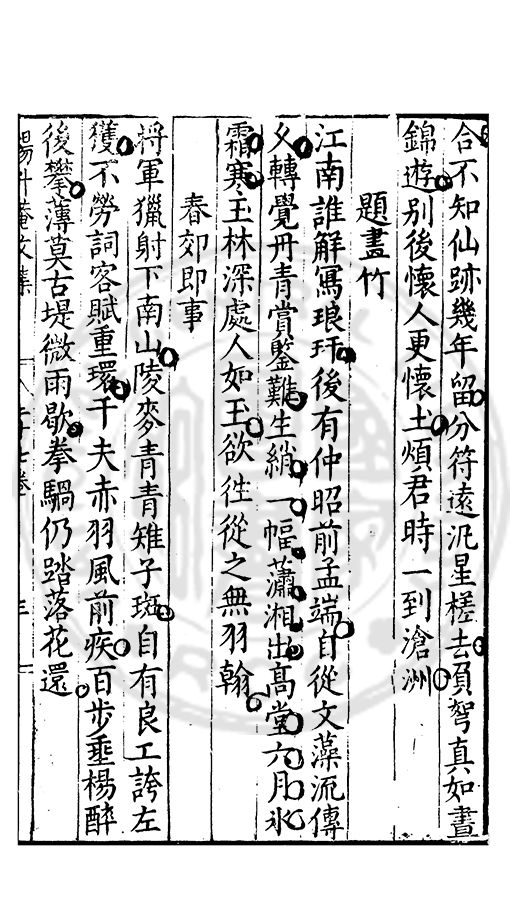 合不知仙跡幾年留分符遠汎星槎去負弩真如晝
錦遊别後懷人更懷土煩君時一到滄洲
題畫竹
江南誰解寫琅玕後有仲昭前孟端自從文藻流傳
乆轉覺丹青賞鑒難生綃一幅瀟湘出髙堂六月氷
霜寒玉林深處人如玉欲徃從之無羽翰
春郊即事
将軍獵射下南山陵麥青青雉子斑自有良工誇左
獲不勞詞客賦重環千夫赤羽風前疾百步垂楊醉
後攀薄莫古堤微雨歇拳騧仍踏落花還